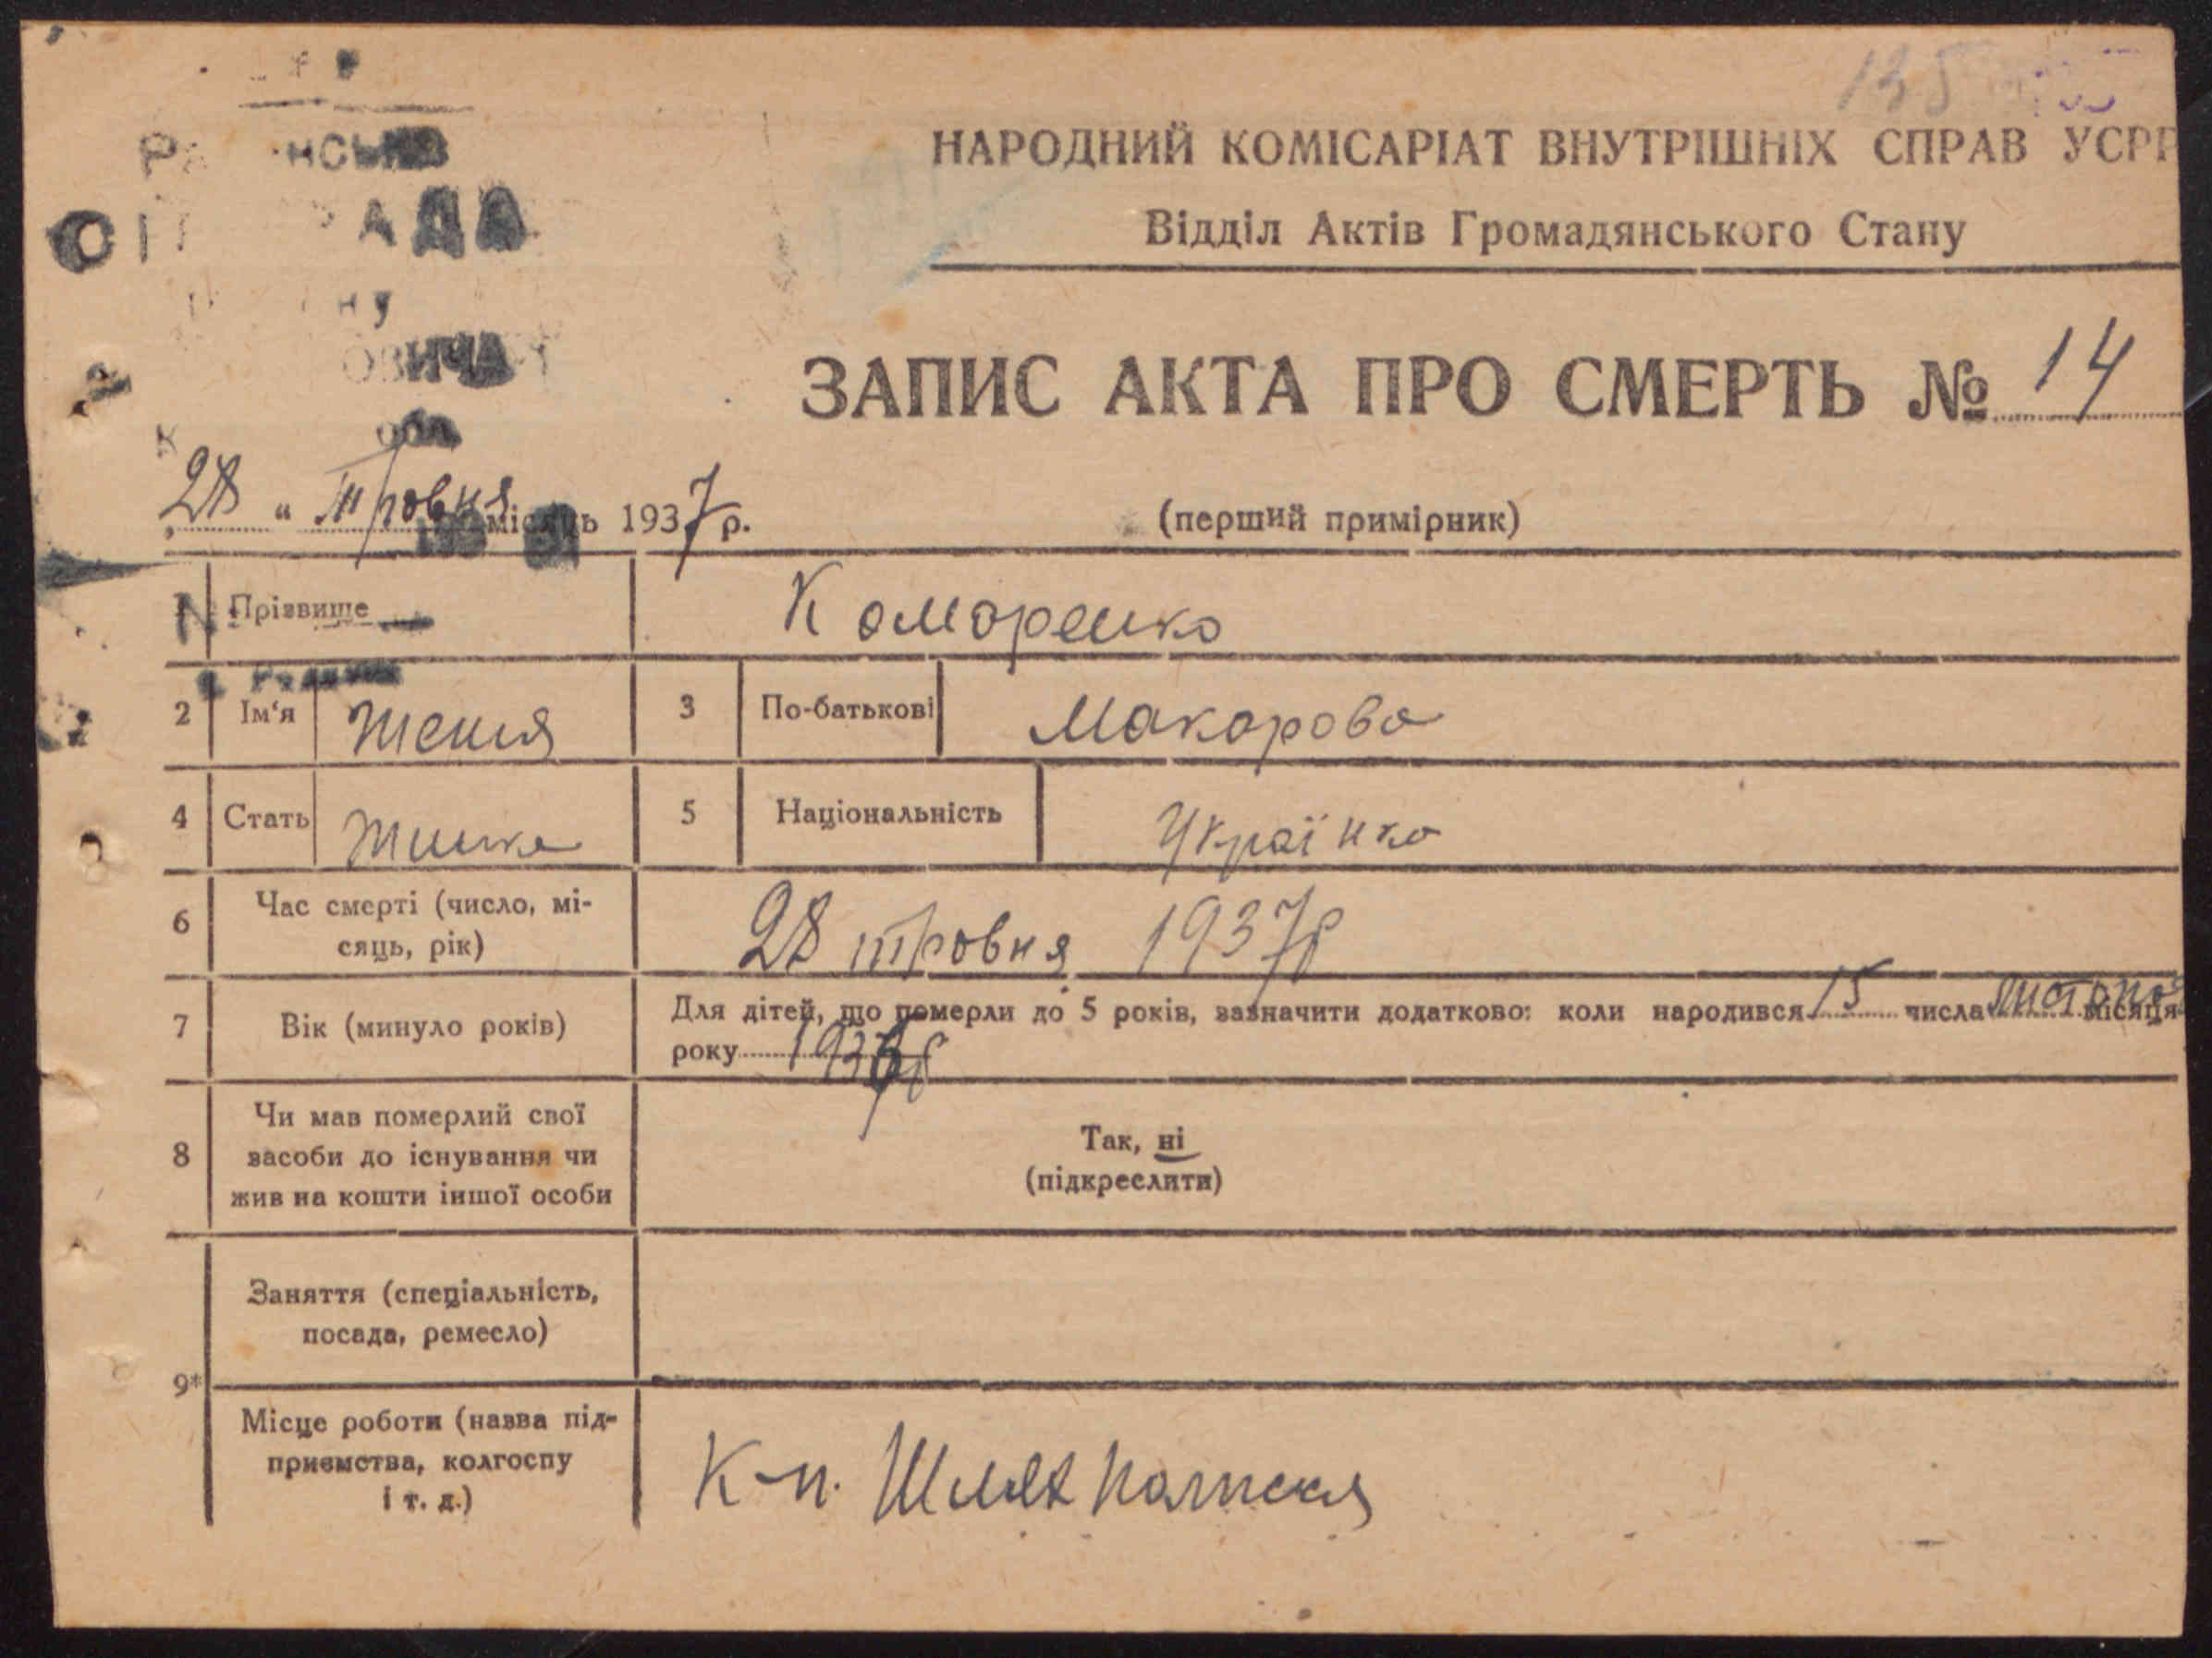 135
НАРОДНИЙ КОМІСАРІАТ ВНУТРІШНІХ СПРАВ УСРР
Відділ Актів Громадянського Стану
ЗАПИС АКТА ПРО СМЕРТЬ № 14
28 " травня місяць 1937 р.
(перший примірник)
1 Прізвище Комаренко
2 Ім'я Женя 3 По-батькові Макарова
4 Стать Жинка 5 Національність Українка
6 Час смерті (число, мі-
сяць, рік) 28 травня 1937р
7 Вік (минуло років) Для дітей, що померли до 5 років, зазначити додатково: коли народився 15 числа листопад місяця
року 1936р
8 Чи мав померлий свої
засоби до існування чи
жив на кошти іншої особи
Так, ні
(підкреслити)
9* Заняття (спеціальність,
посада, ремесло)
Місце роботи (назва під-
приємства, колгоспу
і т. д.)
К-п. Шлях